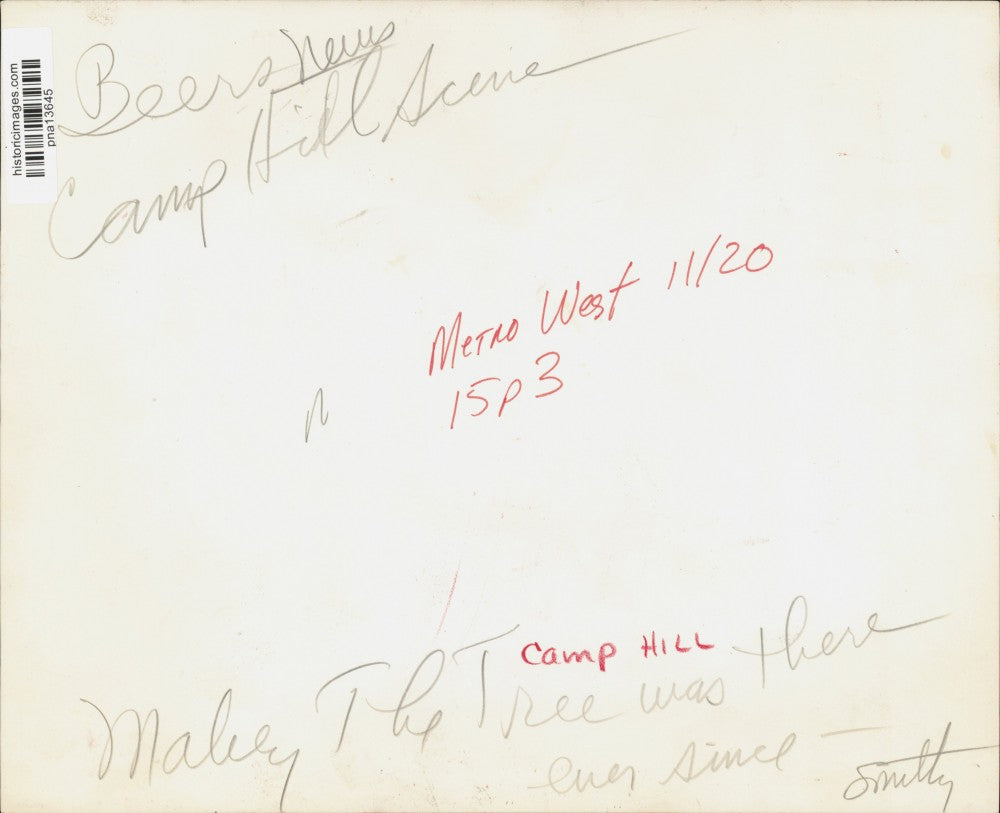 historicimages.com
pna13645
Beers News
Camp Hill Scene
Metro West 11/20
15p3
Camp HILL
The Tree was there
ever since —
Smitty